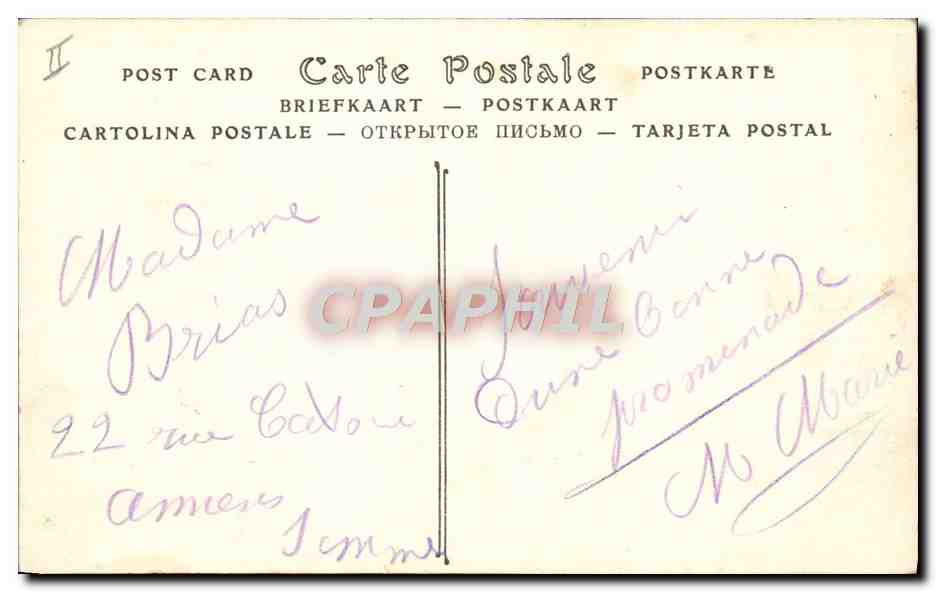 II
POST CARD Carte Postale POSTKARTE
BRIEFKAART — POSTKAART
CARTOLINA POSTALE — ОТКРЫТОЕ ПИСЬМО — TARJETA POSTAL
Madame
Brias
22 rue
Amiens
Somme
Souvenir
D'une bonne
promenade
M Marie
CPAPHIL